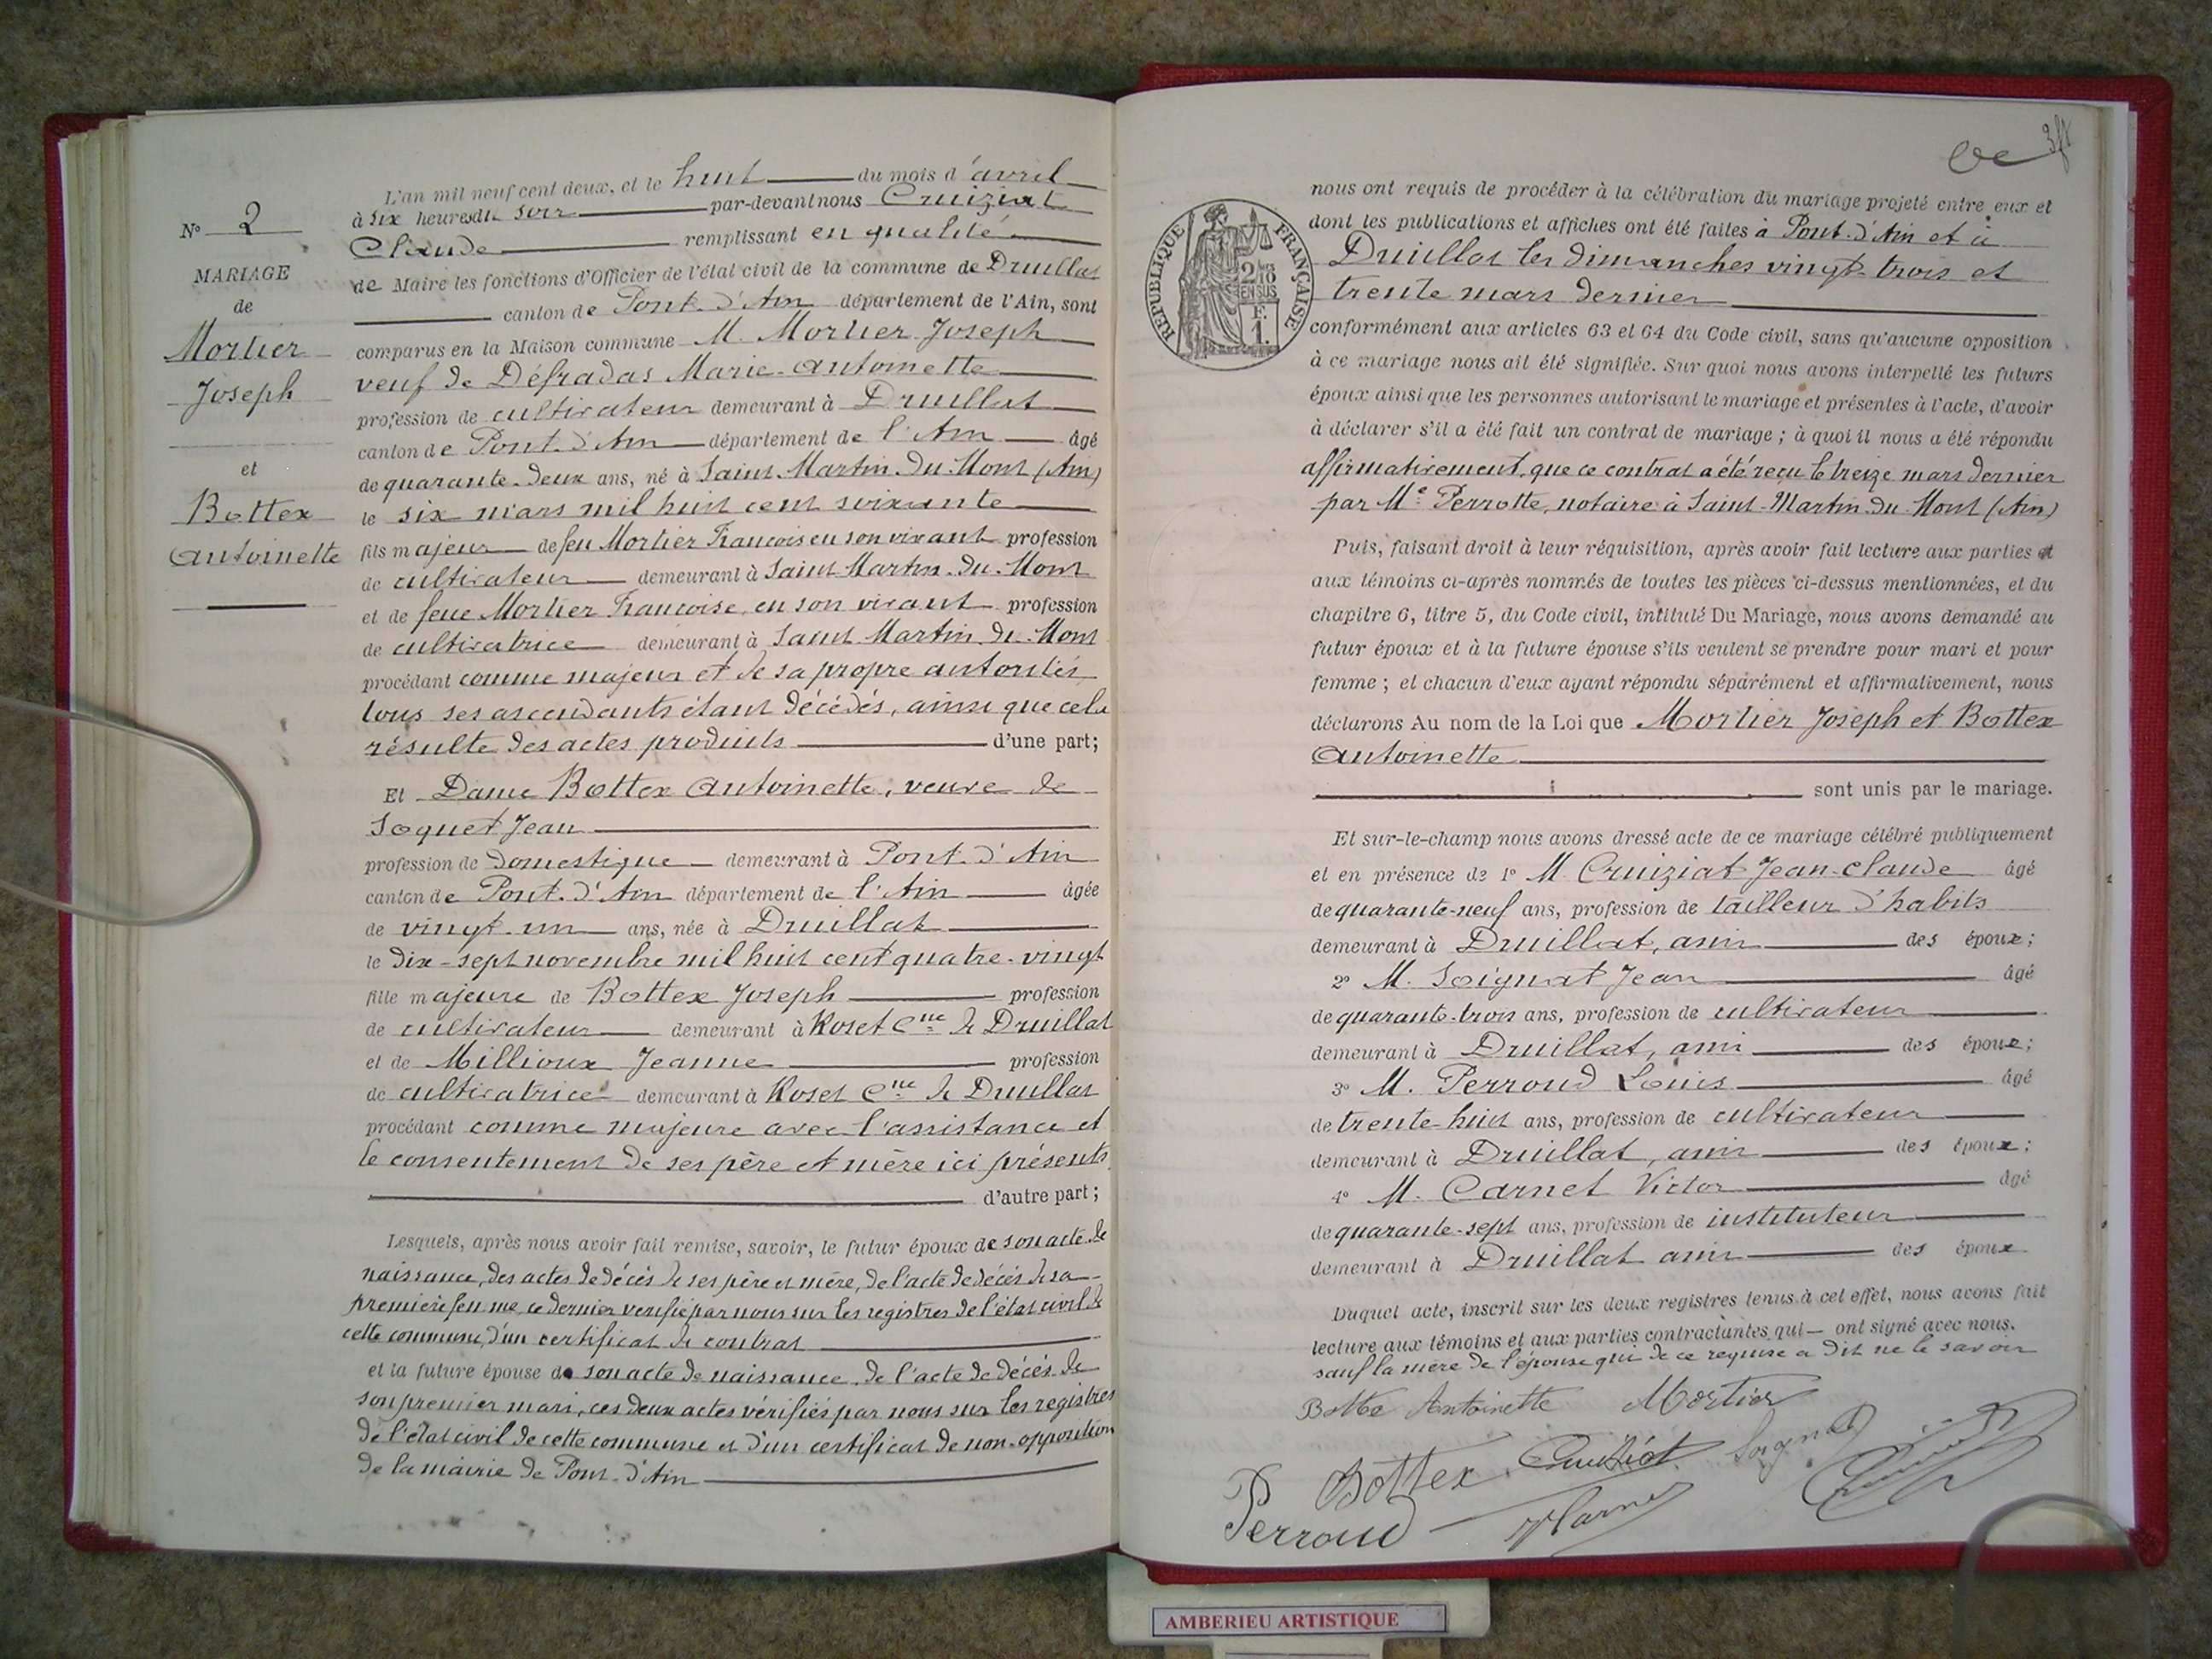 L'an mil neuf cent deux, et le huit du mois d'avril
à six heures du soir par-devant nous Cruiziat
Claude remplissant en qualité
de Maire les fonctions d'Officier de l'état civil de la commune de Druillat
canton de Pont-d'Ain département de l'Ain, sont
comparus en la Maison commune M. Mortier Joseph
veuf de Défradas Marie-Antoinette
profession de cultivateur demeurant à Druillat
canton de Pont-d'Ain département de l'Ain âgé
de quarante-deux ans, né à Saint-Martin-du-Mont (Ain)
le six mars mil huit cent soixante
fils majeur de feu Mortier François en son vivant profession
de cultivateur demeurant à Saint-Martin-du-Mont
et de feue Mortier Françoise, en son vivant profession
de cultivatrice demeurant à Saint-Martin-du-Mont
procédant comme majeur et de sa propre autorité,
tous ses ascendants étant décédés, ainsi que cela
résulte des actes produits d'une part;
Et Dame Bottex Antoinette, veuve de
Soquet Jean
profession de domestique demeurant à Pont-d'Ain
canton de Pont-d'Ain département de l'Ain âgée
de vingt-un ans, née à Druillat
le dix-sept novembre mil huit cent quatre-vingt
fille majeure de Bottex Joseph profession
de cultivateur demeurant à Roset Cne de Druillat
et de Millioux Jeanne profession
de cultivatrice demeurant à Roset Cne de Druillat
procédant comme majeure avec l'assistance et
le consentement de ses père et mère ici présents
d'autre part;
Lesquels, après nous avoir fait remise, savoir, le futur époux de son acte de
naissance, des actes de décès de ses père et mère, de l'acte de décès de sa
première femme, ce dernier vérifié par nous sur les registres de l'état civil de
cette commune, d'un certificat de contrat
et la future épouse de son acte de naissance, de l'acte de décès de
son premier mari, ces deux actes vérifiés par nous sur les registres
de l'état civil de cette commune et d'un certificat de non-opposition
de la mairie de Pont-d'Ain
N° 2
MARIAGE
de
Mortier
Joseph
et
Bottex
Antoinette
RÉPUBLIQUE FRANÇAISE
2/10
EN SUS
F.
1.
nous ont requis de procéder à la célébration du mariage projeté entre eux et
dont les publications et affiches ont été faites à Pont-d'Ain et à
Druillat les dimanches vingt-trois et
trente mars dernier
conformément aux articles 63 et 64 du Code civil, sans qu'aucune opposition
à ce mariage nous ait été signifiée. Sur quoi nous avons interpellé les futurs
époux ainsi que les personnes autorisant le mariage et présentes à l'acte, d'avoir
à déclarer s'il a été fait un contrat de mariage; à quoi il nous a été répondu
affirmativement, que ce contrat a été reçu le treize mars dernier
par Me Perrotte, notaire à Saint-Martin-du-Mont (Ain)
Puis, faisant droit à leur réquisition, après avoir fait lecture aux parties et
aux témoins ci-après nommés de toutes les pièces ci-dessus mentionnées, et du
chapitre 6, titre 5, du Code civil, intitulé Du Mariage, nous avons demandé au
futur époux et à la future épouse s'ils veulent se prendre pour mari et pour
femme; et chacun d'eux ayant répondu séparément et affirmativement, nous
déclarons Au nom de la Loi que Mortier Joseph et Bottex
Antoinette
sont unis par le mariage.
Et sur-le-champ nous avons dressé acte de ce mariage célébré publiquement
et en présence de 1° M. Cruiziat Jean-Claude âgé
de quarante-neuf ans, profession de tailleur d'habits
demeurant à Druillat, ami des époux;
2° M. Soignat Jean âgé
de quarante-trois ans, profession de cultivateur
demeurant à Druillat, ami des époux;
3° M. Perroud Louis âgé
de trente-huit ans, profession de cultivateur
demeurant à Druillat, ami des époux;
4° M. Carnet Victor âgé
de quarante-sept ans, profession de instituteur
demeurant à Druillat ami des époux
Duquel acte, inscrit sur les deux registres tenus à cet effet, nous avons fait
lecture aux témoins et aux parties contractantes qui ont signé avec nous.
sauf la mère de l'épouse qui de ce requise a dit ne le savoir
Botte Antoinette Mortier
Bottex Cruiziat Soignat
Perroud
AMBERIEU ARTISTIQUE